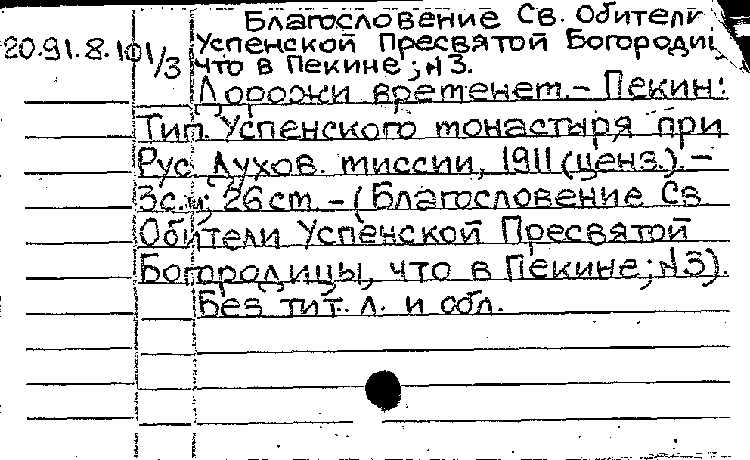 Благословение Св. Обители
20.91.8.10 1/3 Успенской Пресвятой Богородицы
что в Пекине; №3.
Дорожи временем. - Пекин:
Тип. Успенского монастыря при
Рус. Духов. миссии, 1911 (ценз.). -
3с.; 26 см. - (Благословение Св.
Обители Успенской Пресвятой
Богородицы, что в Пекине; №3).
Без тит. л. и обл.